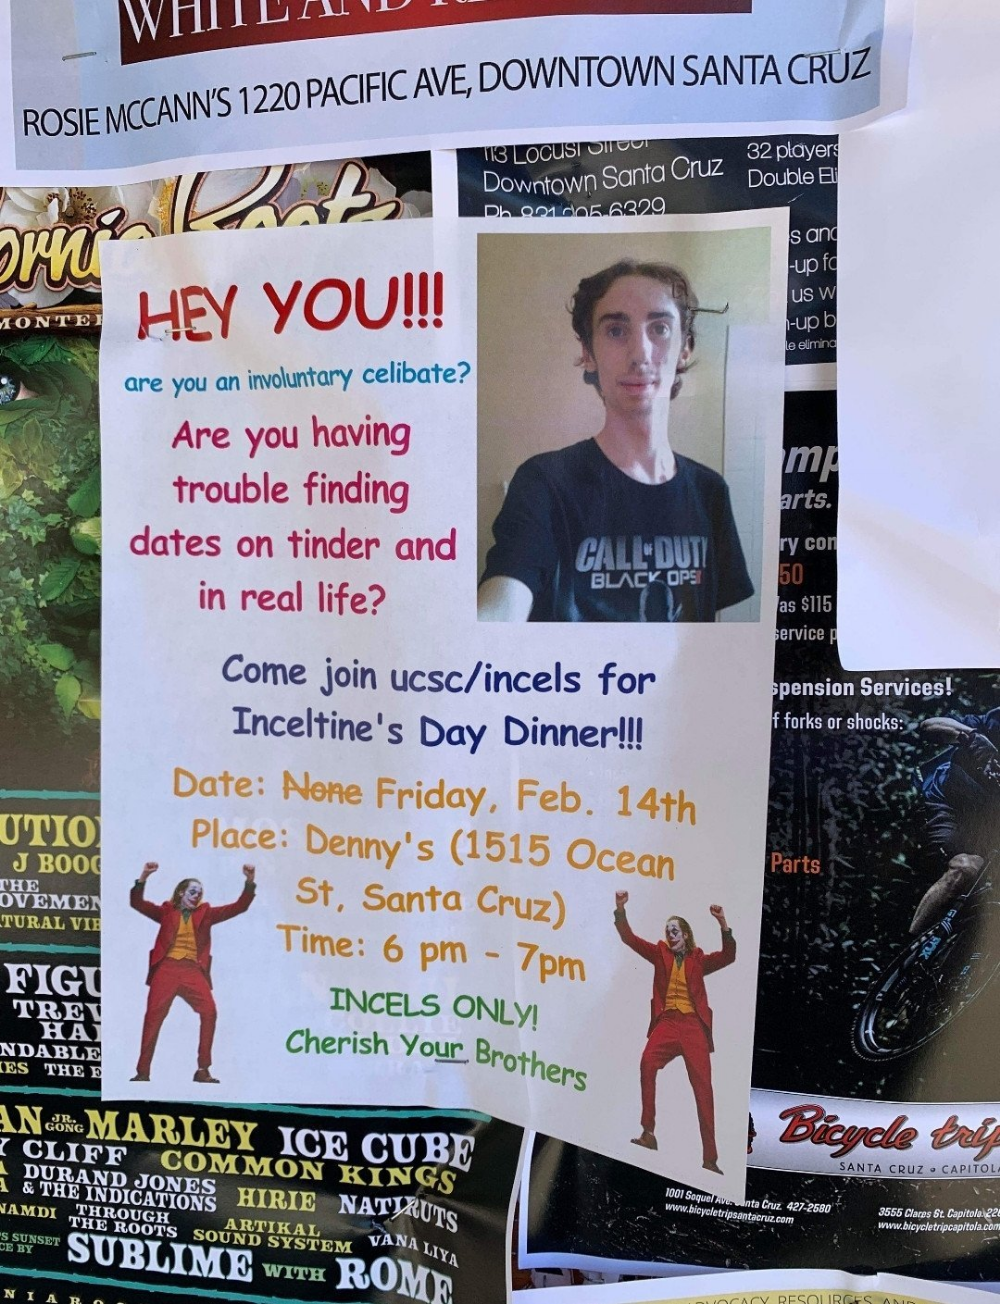 WHITE AND
ROSIE MCCANN'S 1220 PACIFIC AVE, DOWNTOWN SANTA CRUZ
113 Locust Street
Downtown Santa Cruz
32 players
HEY YOU!!!
are you an involuntary celibate?
Are you having
trouble finding
dates on tinder and
in real life?
CALL OF DUTY
BLACK OPS
Come join ucsc/incels for
Inceltine's Day Dinner!!!
Date: None Friday, Feb. 14th
Place: Denny's (1515 Ocean
St, Santa Cruz)
Time: 6 pm - 7pm
INCELS ONLY!
Cherish Your Brothers
us
as $115
service
Services!
forks or shocks:
Parts
J BOOG
THE
JR. GONG MARLEY ICE CUBE
CLIFF COMMON KINGS
DURAND JONES
& THE INDICATIONS HIRIE NATIRUTS
THROUGH
THE ROOTS ARTIKAL
SOUND SYSTEM VANA LIYA
SUNSET
BY
SUBLIME WITH ROME
Bicycle trip
SANTA CRUZ
1001 Soquel Ave. Santa Cruz. 427-2580
www.bicycletripsantacruz.com
3555 Clares St. Capitola.
www.bicycletripcapitola.com
RESOURCES AND